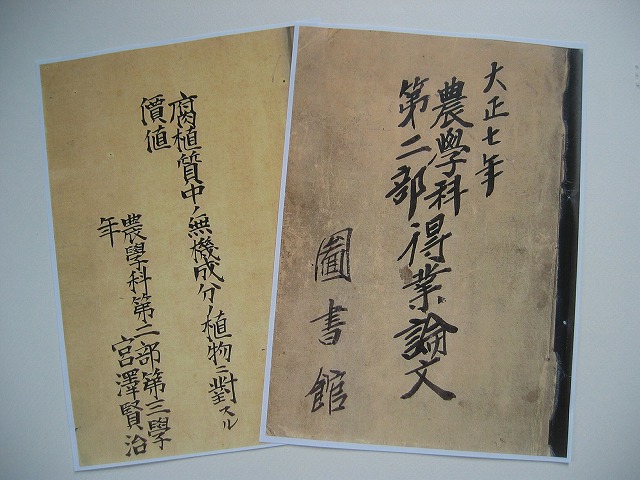 大正七年
農學科
第二部
得業論文
圖書館
腐植質中ノ無機成分ノ植物ニ對スル
價値
農學科第二部第三學
年
宮澤賢治